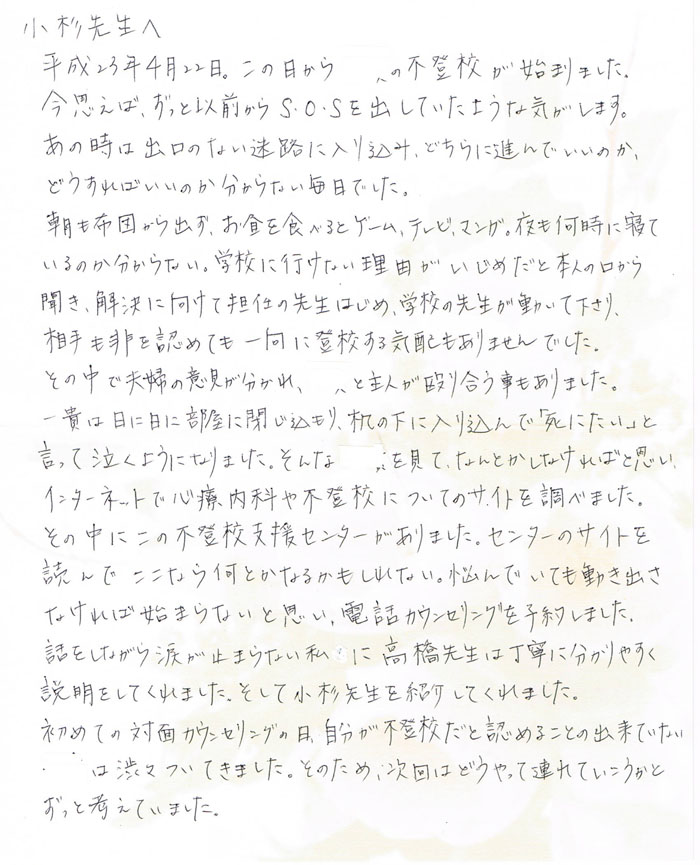 小杉先生へ
平成23年4月22日。この日から の不登校が始まりました。
今思えば、ずっと以前からS・O・Sを出していたような気がします。
あの時は出口のない迷路に入り込み、どちらに進んでいいのか、
どうすればいいのか分からない毎日でした。
朝も布団から出ず、お昼を食べるとゲーム、テレビ、マンガ。夜も何時に寝て
いるのか分からない。学校に行けない理由がいじめだと本人の口から
聞き、解決に向けて担任の先生はじめ、学校の先生が動いて下さり、
相手も非を認めても一向に登校する気配もありませんでした。
その中で夫婦の意見が分かれ、 と主人が殴り合う事もありました。
一貴は日に日に部屋に閉じ込もり、机の下に入り込んで「死にたい」と
言って泣くようになりました。そんな を見て、なんとかしなければと思い、
インターネットで心療内科や不登校についてのサイトを調べました。
その中にこの不登校支援センターがありました。センターのサイトを
読んでここなら何とかなるかもしれない。悩んでいても動き出さ
なければ始まらないと思い、電話カウンセリングを予約しました。
話をしながら涙が止まらない私 に高橋先生は丁寧に分かりやすく
説明をしてくれました。そして小杉先生を紹介してくれました。
初めての対面カウンセリングの日、自分が不登校だと認めることの出来ていない
は渋々ついてきました。そのため、次回はどうやって連れていこうかと
ずっと考えていました。